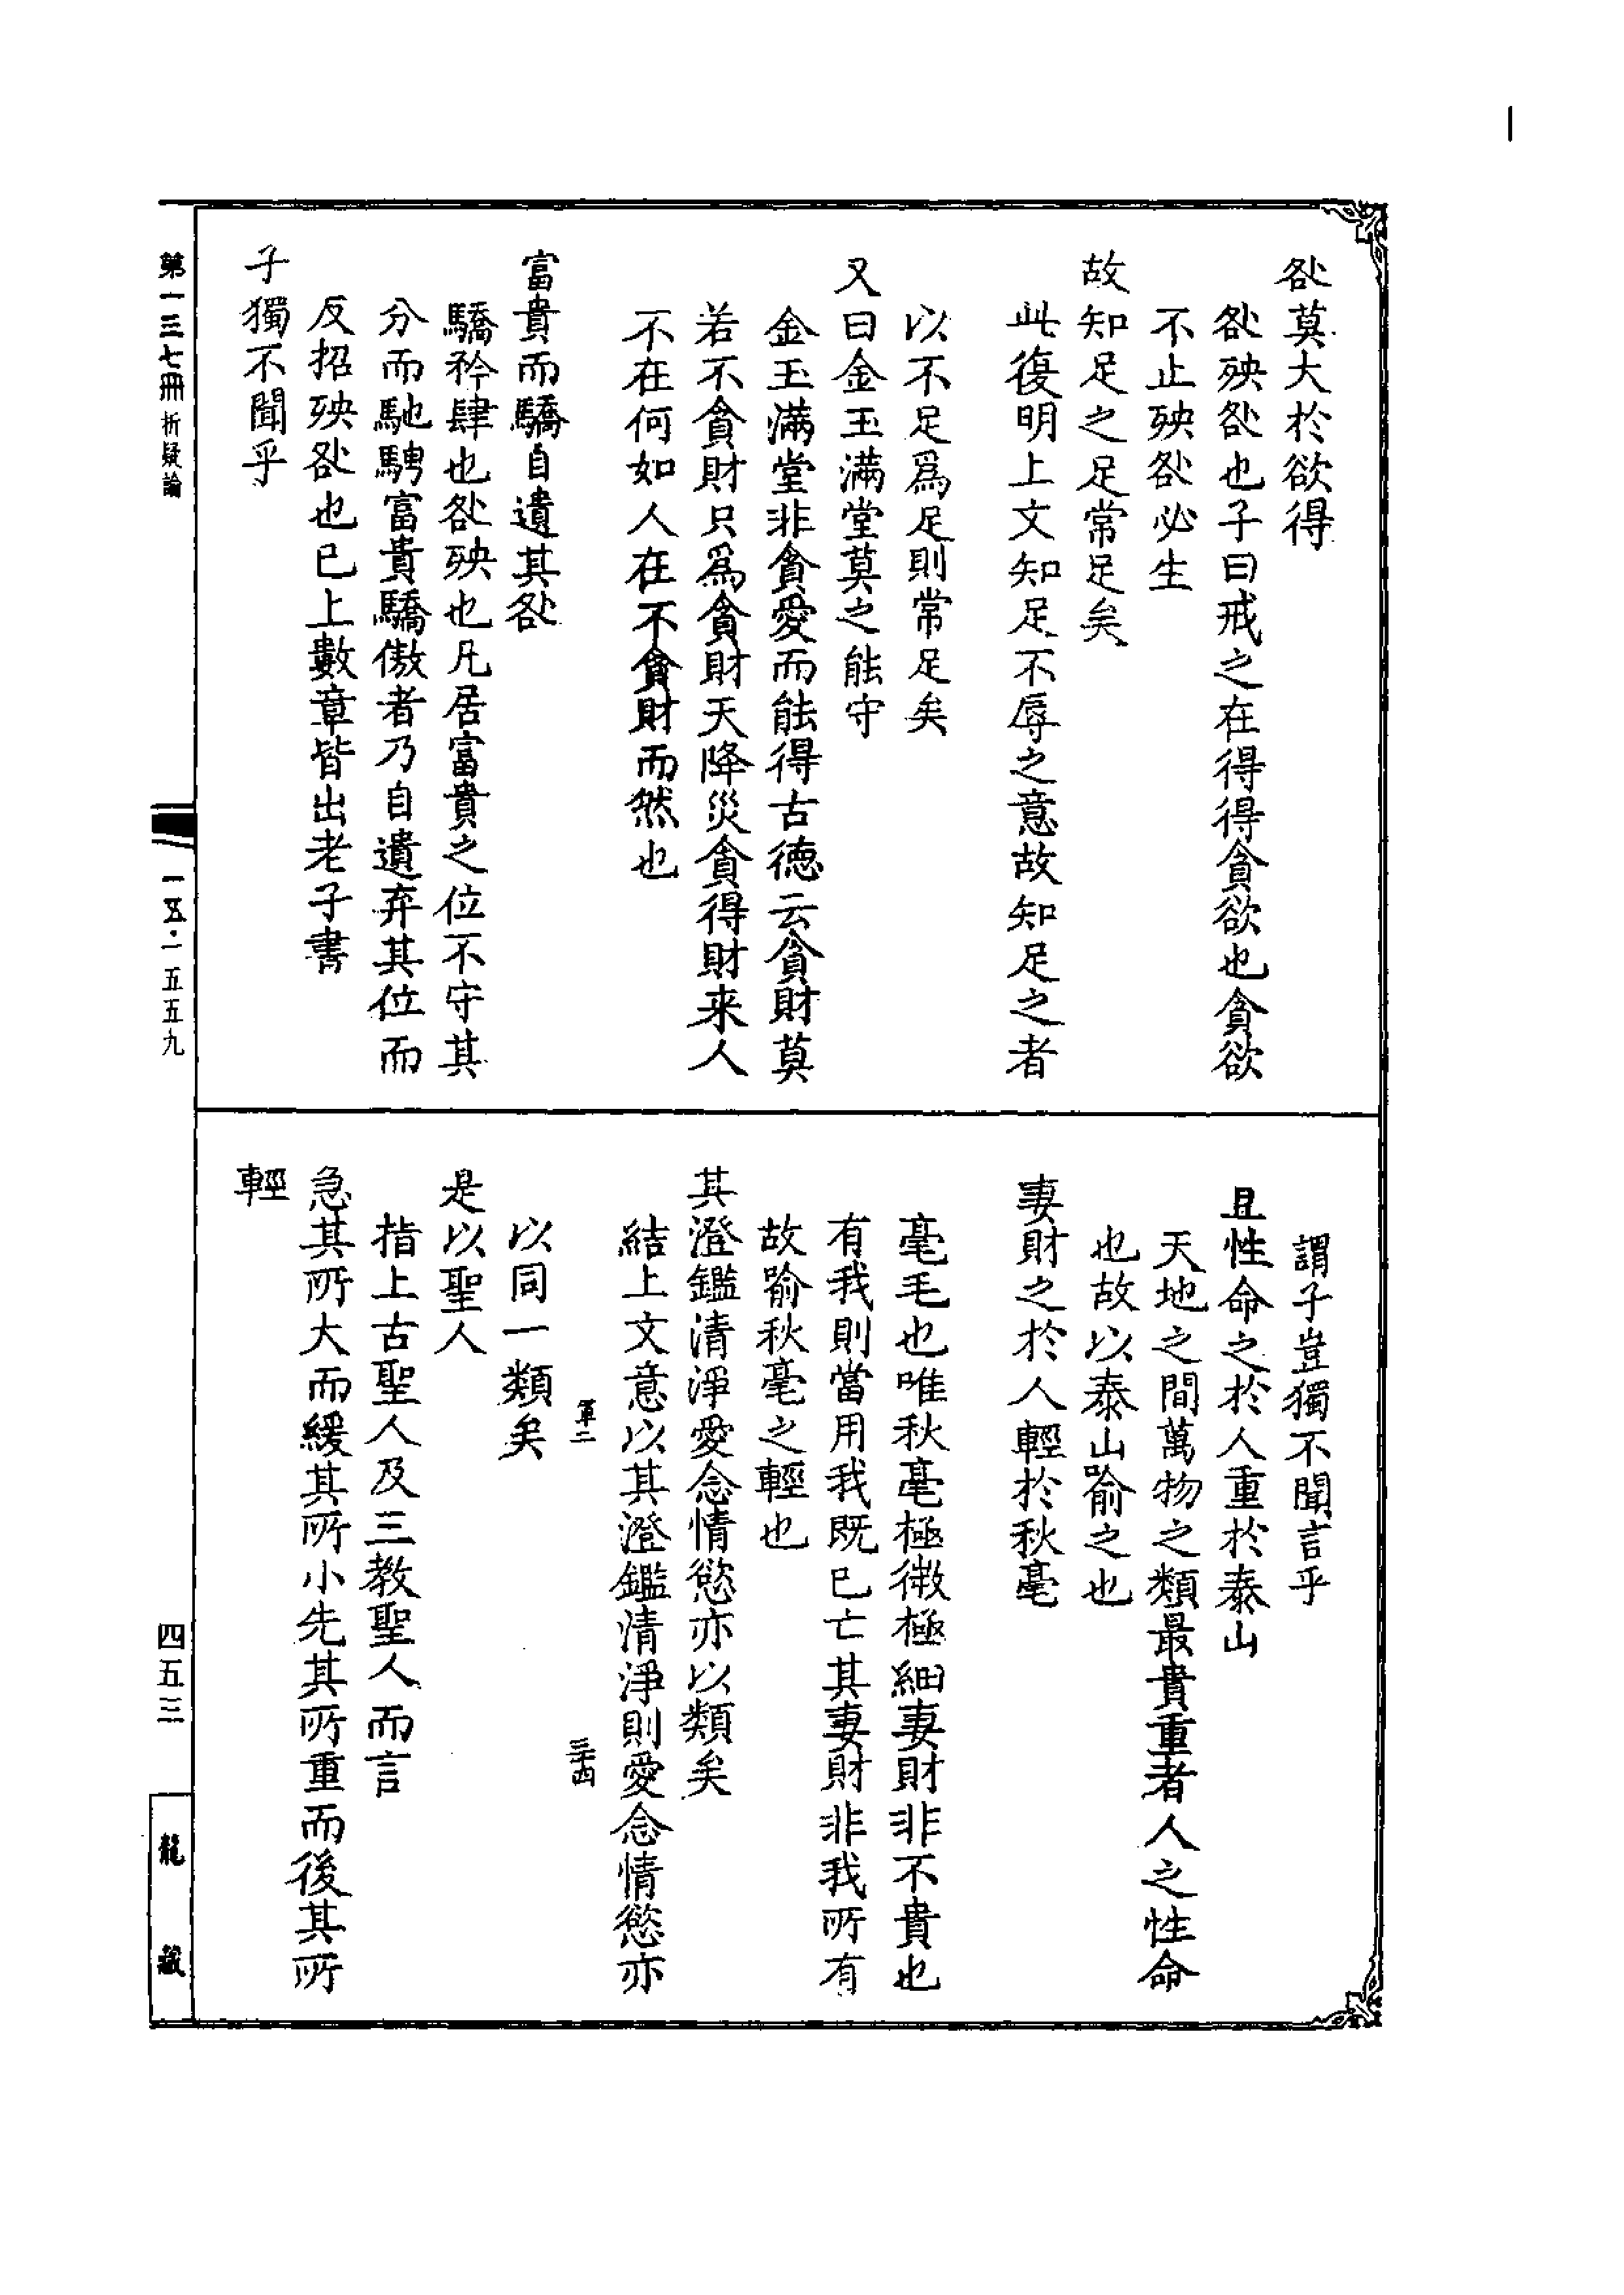 咎莫大於欲得
咎殃咎也子曰戒之在得得貪欲也貪欲
不止殃咎必生
故知足之足常足矣
此復明上文知足不辱之意故知足之者
以不足爲足則常足矣
又曰金玉滿堂莫之能守
金玉滿堂非貪愛而能得古德云貪財莫
若不貪財只爲貪財天降災貪得財来人
不在何如人在不貪財而然也
富貴而驕自遺其咎
驕矜肆也咎殃也凡居富貴之位不守其
分而馳騁富貴驕傲者乃自遺弃其位而
反招殃咎也已上數章皆出老子書
子獨不聞乎
謂子豈獨不聞言乎
且性命之於人重於泰山
天地之間萬物之類最貴重者人之性命
也故以泰山喻之也
妻財之於人輕於秋毫
毫毛也唯秋毫極微極細妻財非不貴也
有我則當用我既已亡其妻財非我所有
故喻秋毫之輕也
其澄鑑清淨愛念情慾亦以類矣
結上文意以其澄鑑清淨則愛念情慾亦
軍二
三十四
以同一類矣
是以聖人
指上古聖人及三教聖人而言
急其所大而緩其所小先其所重而後其所
輕
第一三七冊 析疑論
一五·一五五九
四五三
龍藏